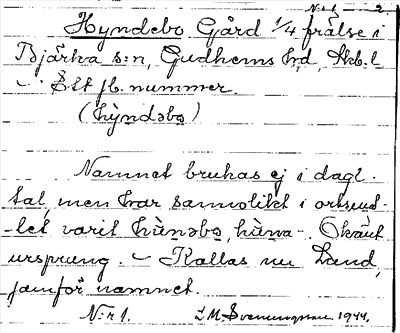 N:r 1 2.
Hyndebo Gård 1/4 frälse i
Bjärka s:n, Gudhems hd, Skb.l
– Ett jb. nummer.
(hỳndəbo)
Namnet brukas ej i dagl.
tal men har sannolikt i
varit hùnəbo, hùna-. Okänt
ursprung. – Kallas nu Lund,
jämför namnet.
N:r 1. L.M. Svenungsson 1944.